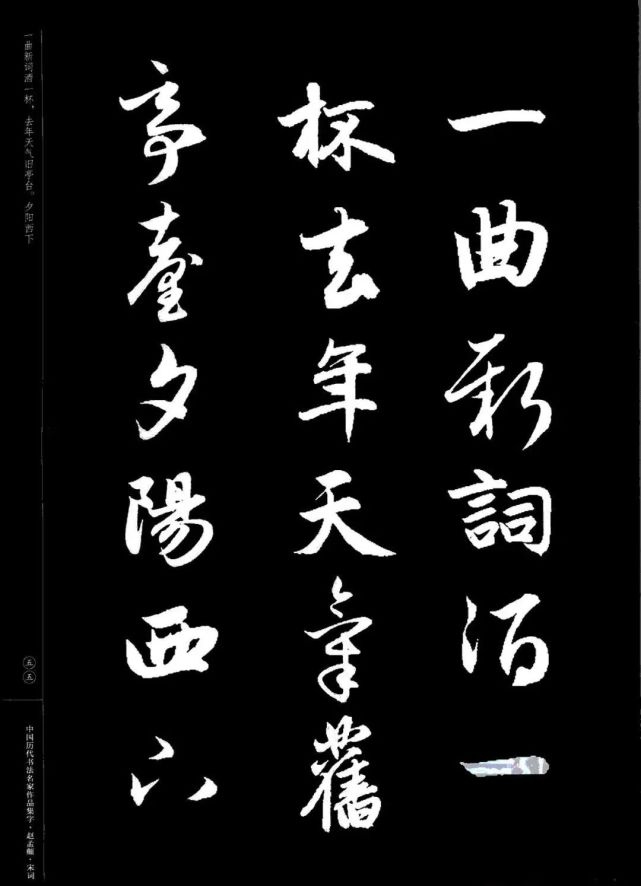 一曲新詞酒一
杯去年天氣舊
亭臺夕陽西下
一曲新词酒一杯，去年天气旧亭台。夕阳西下
五五
中国历代书法名家作品集字·赵孟頫·宋词